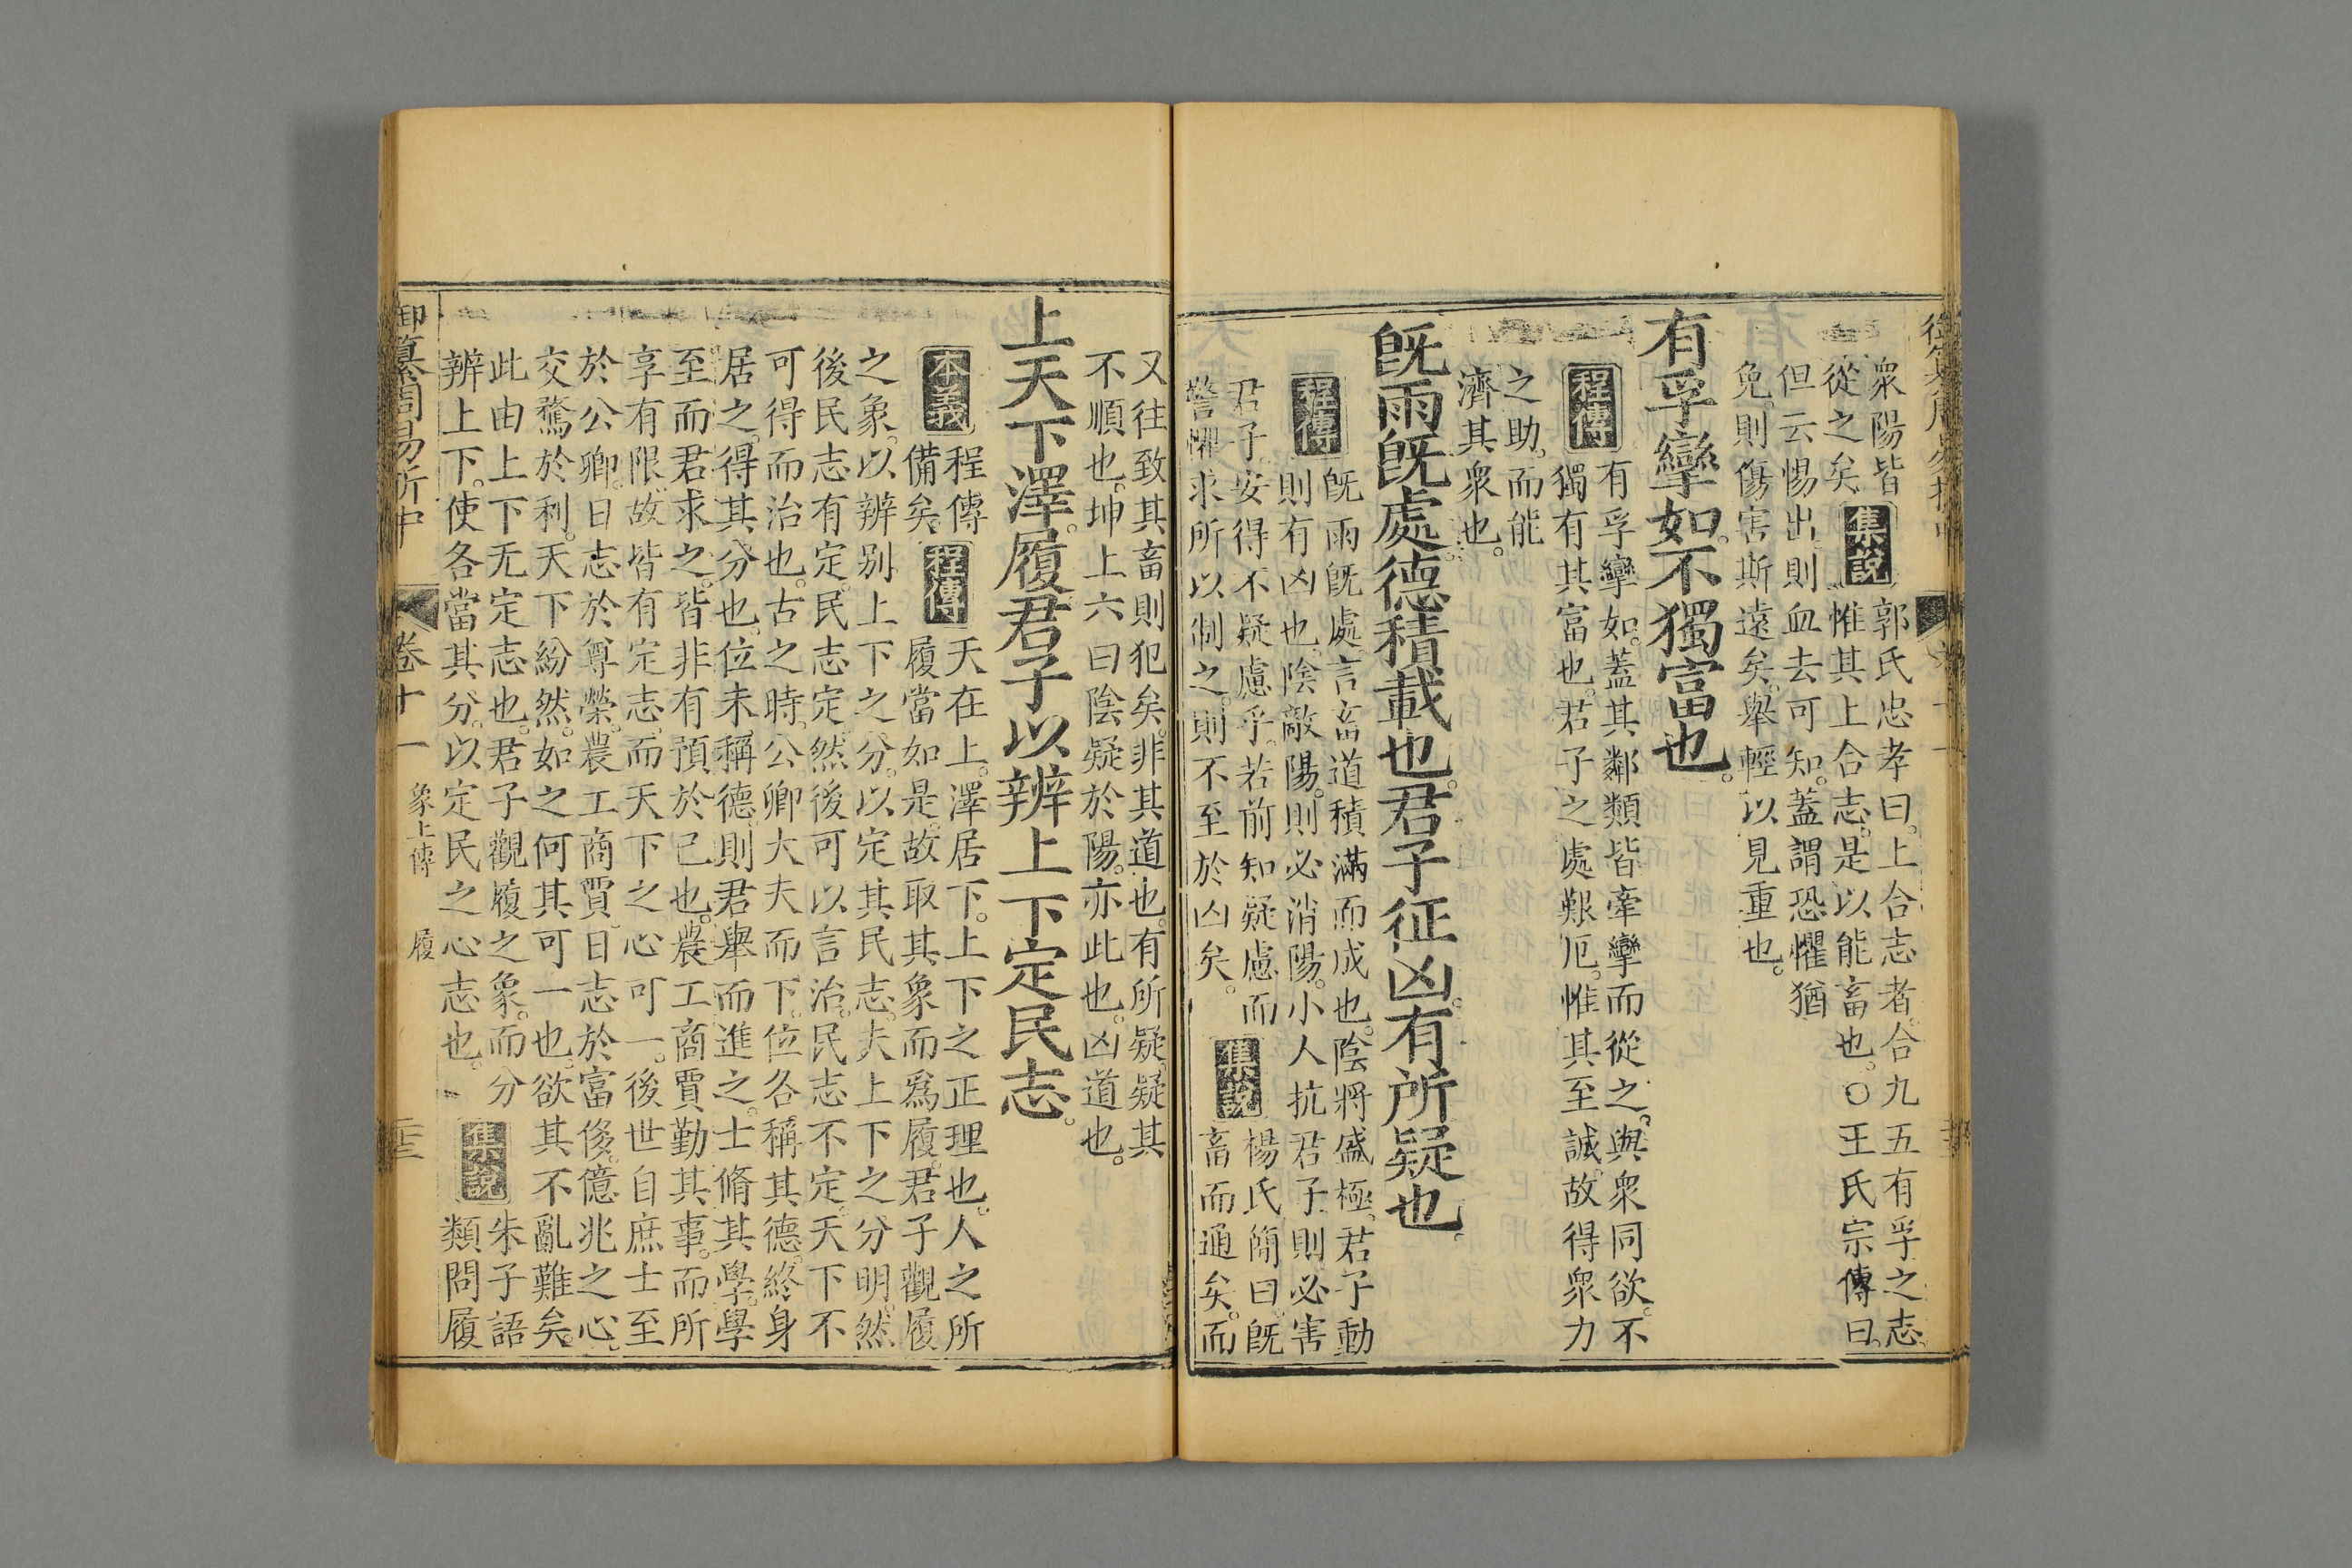 衆陽皆集説郭氏忠孝曰。上合志者。合九五有孚之志。
從之矣惟其上合志。是以能畜也。○王氏宗傳曰。
但云惕出。則血去可知。蓋謂恐懼猶
免。則傷害斯遠矣。舉輕以見重也。
有孚攣如。不獨富也。
程傳有孚攣如。蓋其鄰類皆牽攣而從之。與衆同欲。不
獨有其富也。君子之處艱厄。惟其至誠。故得衆力
之助。而能
濟其衆也。
既雨既處。德積載也。君子征凶。有所疑也。
程傳既雨既處。言畜道積滿而成也。陰將盛極。君子動
則有凶也。陰敵陽。則必消陽。小人抗君子。則必害
君子。安得不疑慮乎。若前知疑慮而集説楊氏簡曰。既
警懼求所以制之。則不至於凶矣。畜而通矣。而
又往致其畜則犯矣。非其道也。有所疑。疑其
不順也。坤上六曰陰疑於陽。亦此也。凶道也。
上天下澤。履君子以辨上下定民志。
本義程傳程傳天在上。澤居下。上下之正理也。人之所
備矣。履當如是。故取其象而爲履。君子觀履
之象。以辨别上下之分。以定其民志。夫上下之分明。然
後民志有定。民志定。然後可以言治。民志不定。天下不
可得而治也。古之時。公卿大夫而下。位各稱其德。終身
居之。得其分也。位未稱德。則君舉而進之。士脩其學。學
至而君求之。皆非有預於己也。農工商賈勤其事。而所
享有限。故皆有定志。而天下之心可一。後世自庶士至
於公卿。日志於尊榮。農工商賈。日志於富侈。億兆之心。
交騖於利。天下紛然。如之何其可一也。欲其不亂難矣。
此由上下无定志也。君子觀履之象。而分集説朱子語
辨上下。使各當其分。以定民之心志也。類問履
御纂周易折中 卷十一 象上傳 履 三十三